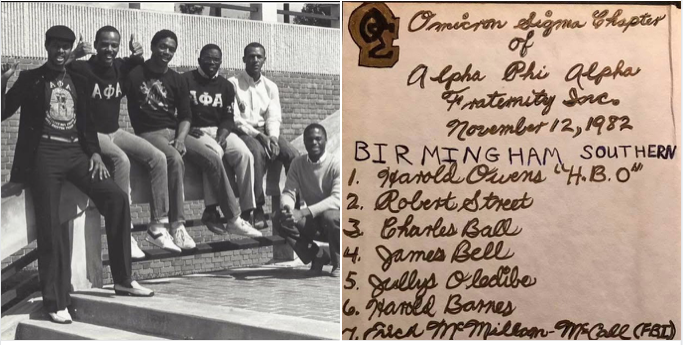 ΑΦΑ
ΑΦΑ
ΑΦΑ
ΟΣ
Omicron Sigma Chapter
of
Alpha Phi Alpha
Fraternity Inc.
November 12, 1982
BIRMINGHAM SOUTHERN
1. Harold Owens "H.B.O"
2. Robert Street
3. Charles Ball
4. James Bell
5. Jullys Oledibe
6. Harold Barnes
7. Erich McMillam-McCall (FBI)